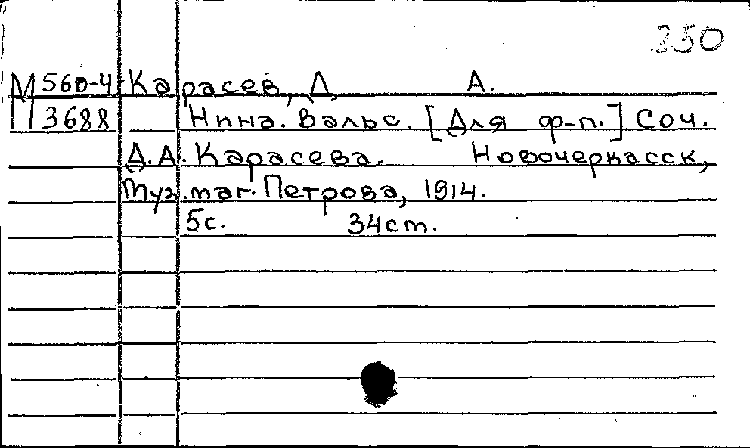 350
М 560-4 Карасев, Д. А.
П 3688 Нина. Вальс. [Для ф-п.] Соч.
Д.А. Карасева. Новочеркасск,
Муз. маг. Петрова, 1914.
5с. 34см.